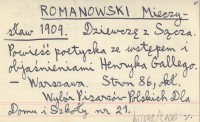 ROMANOWSKI Mieczy-
sław 1909. Dziewczę z Sącza.
Powieść poetycka ze wstępem i
objaśnieniami Henryka Gallego.
Warszawa. Stron 86, kl.
Wybór Pisarzów Polskich Dla
Domu i Szkoły nr 21.